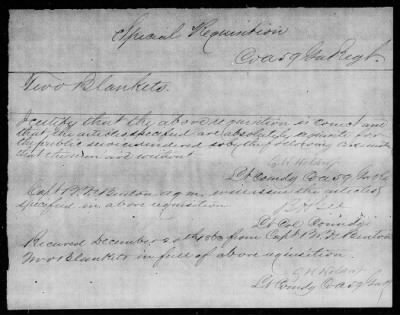 Special Requisition
Co a 59 Ga Regt.
Two Blankets.
I certify that the above requisition is correct and
that the articles specified are absolutely requisite for
the public service
that the men are without
Lt Comdg Co a 59 Ga
Capt B. F. Benton a q m will issue the articles
specified in above requisition
Lt Col Comdg
Received December 20th 1863 from Capt B. F. Benton
Two Blankets in full of above requisition.
Lt Comdg Co a 59 Ga